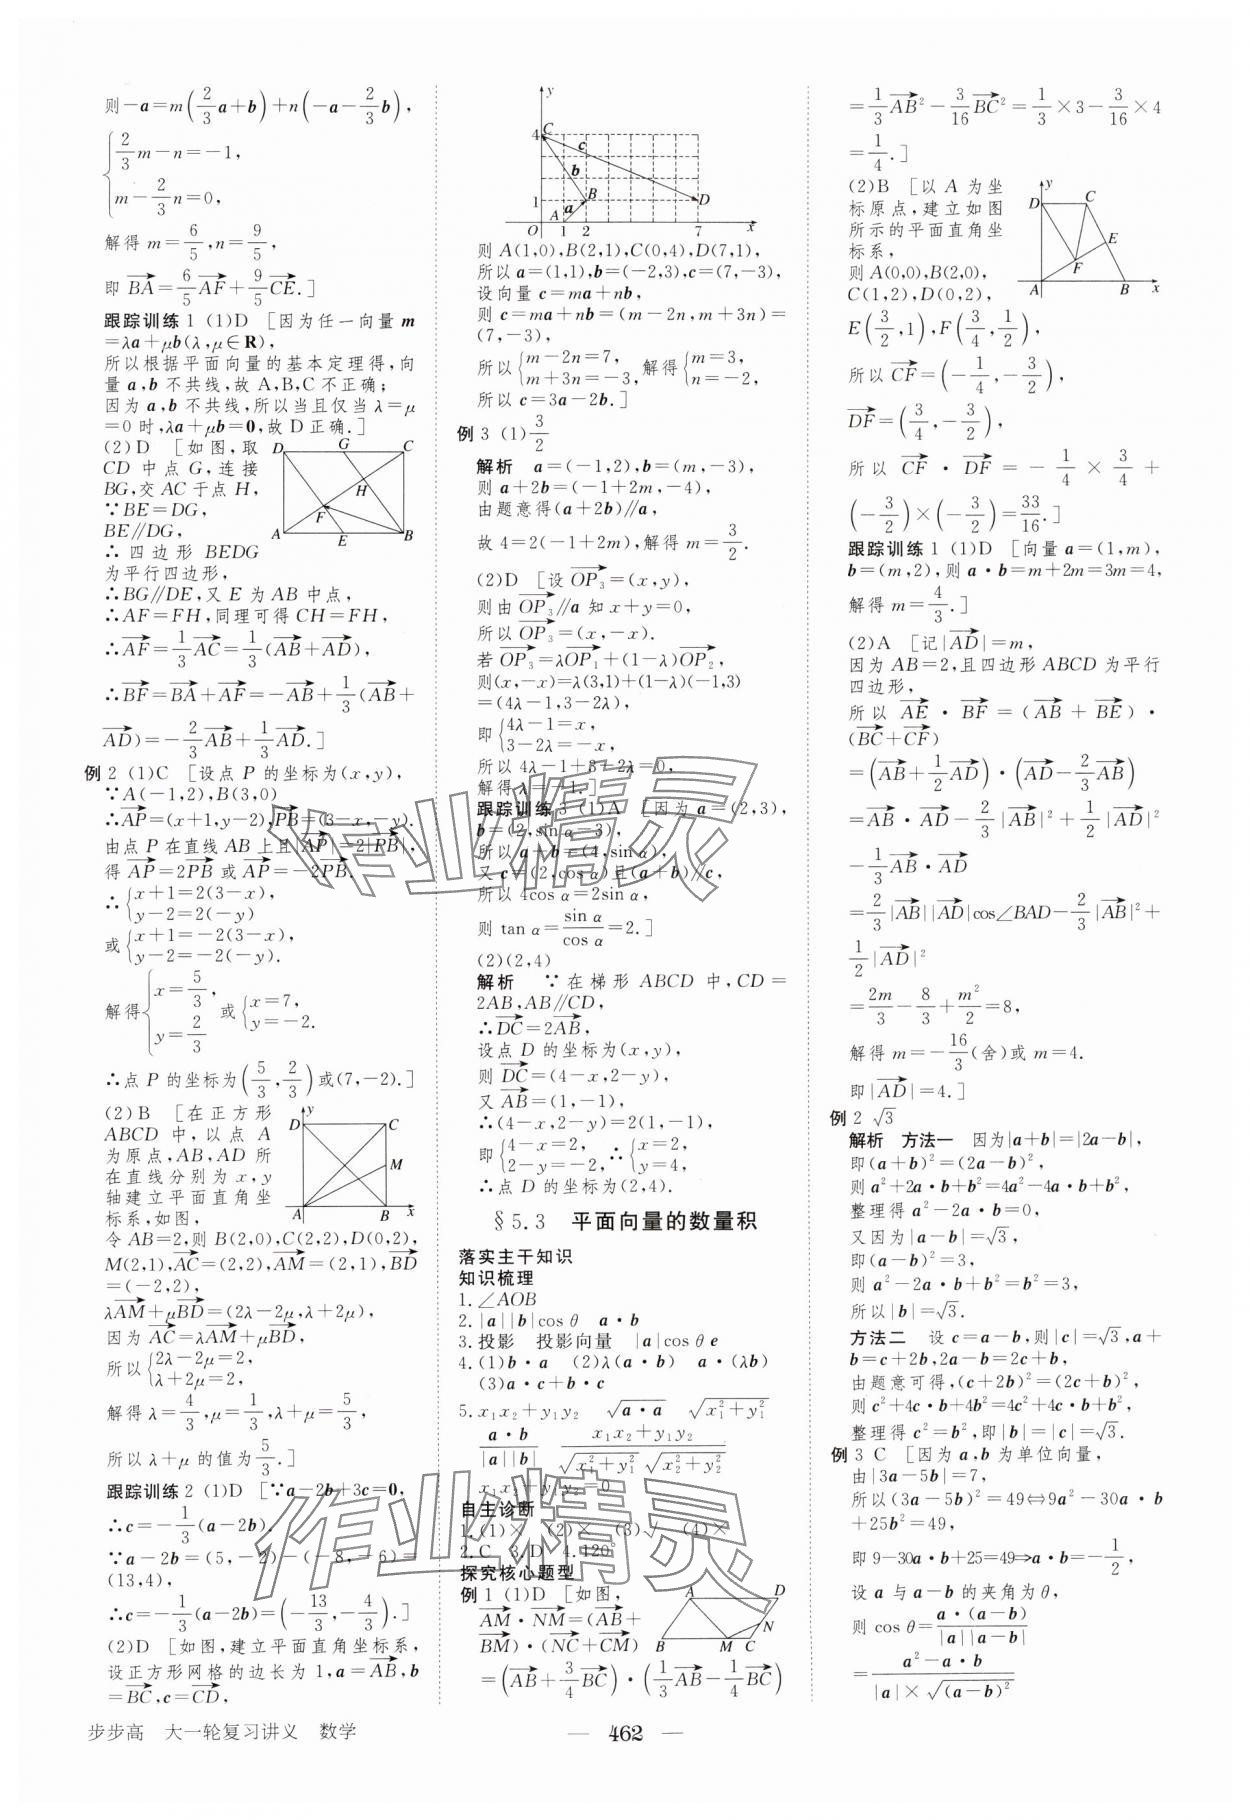 则-a=m(2/3a+b)+n(-a-2/3b),
{2/3m-n=-1,
m-2/3n=0,
解得 m=6/5,n=9/5,
即 BA=6/5AF+9/5CE.]
跟踪训练1 (1)D [因为任一向量 m
=λa+μb(λ,μ∈R),
所以根据平面向量的基本定理得,向
量 a,b 不共线,故 A,B,C 不正确;
因为 a,b 不共线,所以当且仅当 λ=μ
=0 时,λa+μb=0,故 D 正确.]
(2)D [如图,取
CD 中点 G,连接
BG,交 AC 于点 H,
∵BE=DG,
BE∥DG,
∴四边形 BEDG
为平行四边形,
D G C
H
F
A E B
∴BG∥DE,又 E 为 AB 中点,
∴AF=FH,同理可得 CH=FH,
∴AF=1/3AC=1/3(AB+AD),
∴BF=BA+AF=-AB+1/3(AB+
AD)=-2/3AB+1/3AD.]
例2 (1)C [设点 P 的坐标为(x,y),
∵A(-1,2),B(3,0)
∴AP=(x+1,y-2),PB=(3-x,-y).
由点 P 在直线 AB 上且|AP|=2|PB|,
得 AP=2PB 或 AP=-2PB.
∴{x+1=2(3-x),
y-2=2(-y)
或{x+1=-2(3-x),
y-2=-2(-y).
解得{x=5/3,
y=2/3
或{x=7,
y=-2.
∴点 P 的坐标为(5/3,2/3)或(7,-2).]
(2)B [在正方形
ABCD 中,以点 A
为原点,AB,AD 所
在直线分别为 x,y
轴建立平面直角坐
标系,如图,
y
D C
M
A B x
令 AB=2,则 B(2,0),C(2,2),D(0,2),
M(2,1),AC=(2,2),AM=(2,1),BD
=(-2,2),
λAM+μBD=(2λ-2μ,λ+2μ),
因为 AC=λAM+μBD,
所以{2λ-2μ=2,
λ+2μ=2,
解得 λ=4/3,μ=1/3,λ+μ=5/3,
所以 λ+μ 的值为5/3.]
跟踪训练2 (1)D [∵a-2b+3c=0,
∴c=-1/3(a-2b).
∵a-2b=(5,-2)-(-8,-6)=
(13,4),
∴c=-1/3(a-2b)=(-13/3,-4/3).]
(2)D [如图,建立平面直角坐标系,
设正方形网格的边长为 1,a=AB,b
=BC,c=CD,
y
4 C
c
b
B D
1 a
A
O 1 2 7 x
则 A(1,0),B(2,1),C(0,4),D(7,1),
所以 a=(1,1),b=(-2,3),c=(7,-3),
设向量 c=ma+nb,
则 c=ma+nb=(m-2n,m+3n)=
(7,-3),
所以{m-2n=7,
m+3n=-3,
解得{m=3,
n=-2,
所以 c=3a-2b.]
例3 (1)3/2
解析 a=(-1,2),b=(m,-3),
则 a+2b=(-1+2m,-4),
由题意得(a+2b)∥a,
故 4=2(-1+2m),解得 m=3/2.
(2)D [设 OP₃=(x,y),
则由 OP₃∥a 知 x+y=0,
所以 OP₃=(x,-x).
若 OP₃=λOP₁+(1-λ)OP₂,
则(x,-x)=λ(3,1)+(1-λ)(-1,3)
=(4λ-1,3-2λ),
即{4λ-1=x,
3-2λ=-x,
所以 4λ-1+3-2λ=0,
解得 λ=-1.]
跟踪训练3 (1)A [因为 a=(2,3),
b=(2,sin α-3),
所以 a+b=(4,sin α),
又 c=(2,cos α)且(a+b)∥c,
所以 4cos α=2sin α,
则 tan α=sin α/cos α=2.]
(2)(2,4)
解析 ∵在梯形 ABCD 中,CD=
2AB,AB∥CD,
∴DC=2AB,
设点 D 的坐标为(x,y),
则 DC=(4-x,2-y),
又 AB=(1,-1),
∴(4-x,2-y)=2(1,-1),
即{4-x=2,
2-y=-2,
∴{x=2,
y=4,
∴点 D 的坐标为(2,4).
§5.3 平面向量的数量积
落实主干知识
知识梳理
1.∠AOB
2.|a||b|cos θ a·b
3.投影 投影向量 |a|cos θ e
4.(1)b·a (2)λ(a·b) a·(λb)
(3)a·c+b·c
5.x₁x₂+y₁y₂ √(a·a) √(x₁²+y₁²)
a·b/(|a||b|) (x₁x₂+y₁y₂)/(√(x₁²+y₁²)√(x₂²+y₂²))
x₁x₂+y₁y₂=0
自主诊断
1.(1)× (2)× (3)√ (4)×
2.C 3.D 4.120°
探究核心题型
例1 (1)D [如图,
AM·NM=(AB+
BM)·(NC+CM)
A D
N
B M C
=(AB+3/4BC)·(1/3AB-1/4BC)
=1/3AB²-3/16BC²=1/3×3-3/16×4
=1/4.]
(2)B [以 A 为坐
标原点,建立如图
所示的平面直角坐
标系,
则 A(0,0),B(2,0),
C(1,2),D(0,2),
y
D C
E
F
A B x
E(3/2,1),F(3/4,1/2),
所以 CF=(-1/4,-3/2),
DF=(3/4,-3/2),
所以 CF·DF=-1/4×3/4+
(-3/2)×(-3/2)=33/16.]
跟踪训练1 (1)D [向量 a=(1,m),
b=(m,2),则 a·b=m+2m=3m=4,
解得 m=4/3.]
(2)A [记|AD|=m,
因为 AB=2,且四边形 ABCD 为平行
四边形,
所以 AE·BF=(AB+BE)·
(BC+CF)
=(AB+1/2AD)·(AD-2/3AB)
=AB·AD-2/3|AB|²+1/2|AD|²
-1/3AB·AD
=2/3|AB||AD|cos∠BAD-2/3|AB|²+
1/2|AD|²
=2m/3-8/3+m²/2=8,
解得 m=-16/3(舍)或 m=4.
即|AD|=4.]
例2 √3
解析 方法一 因为|a+b|=|2a-b|,
即(a+b)²=(2a-b)²,
则 a²+2a·b+b²=4a²-4a·b+b²,
整理得 a²-2a·b=0,
又因为|a-b|=√3,
即(a-b)²=3,
则 a²-2a·b+b²=b²=3,
所以|b|=√3.
方法二 设 c=a-b,则|c|=√3,a+
b=c+2b,2a-b=2c+b,
由题意可得,(c+2b)²=(2c+b)²,
则 c²+4c·b+4b²=4c²+4c·b+b²,
整理得 c²=b²,即|b|=|c|=√3.
例3 C [因为 a,b 为单位向量,
由|3a-5b|=7,
所以(3a-5b)²=49⇔9a²-30a·b
+25b²=49,
即 9-30a·b+25=49⇒a·b=-1/2,
设 a 与 a-b 的夹角为 θ,
则 cos θ=a·(a-b)/(|a||a-b|)
=(a²-a·b)/(|a|×√((a-b)²))
作业精灵
作业精灵
步步高 大一轮复习讲义 数学
— 462 —